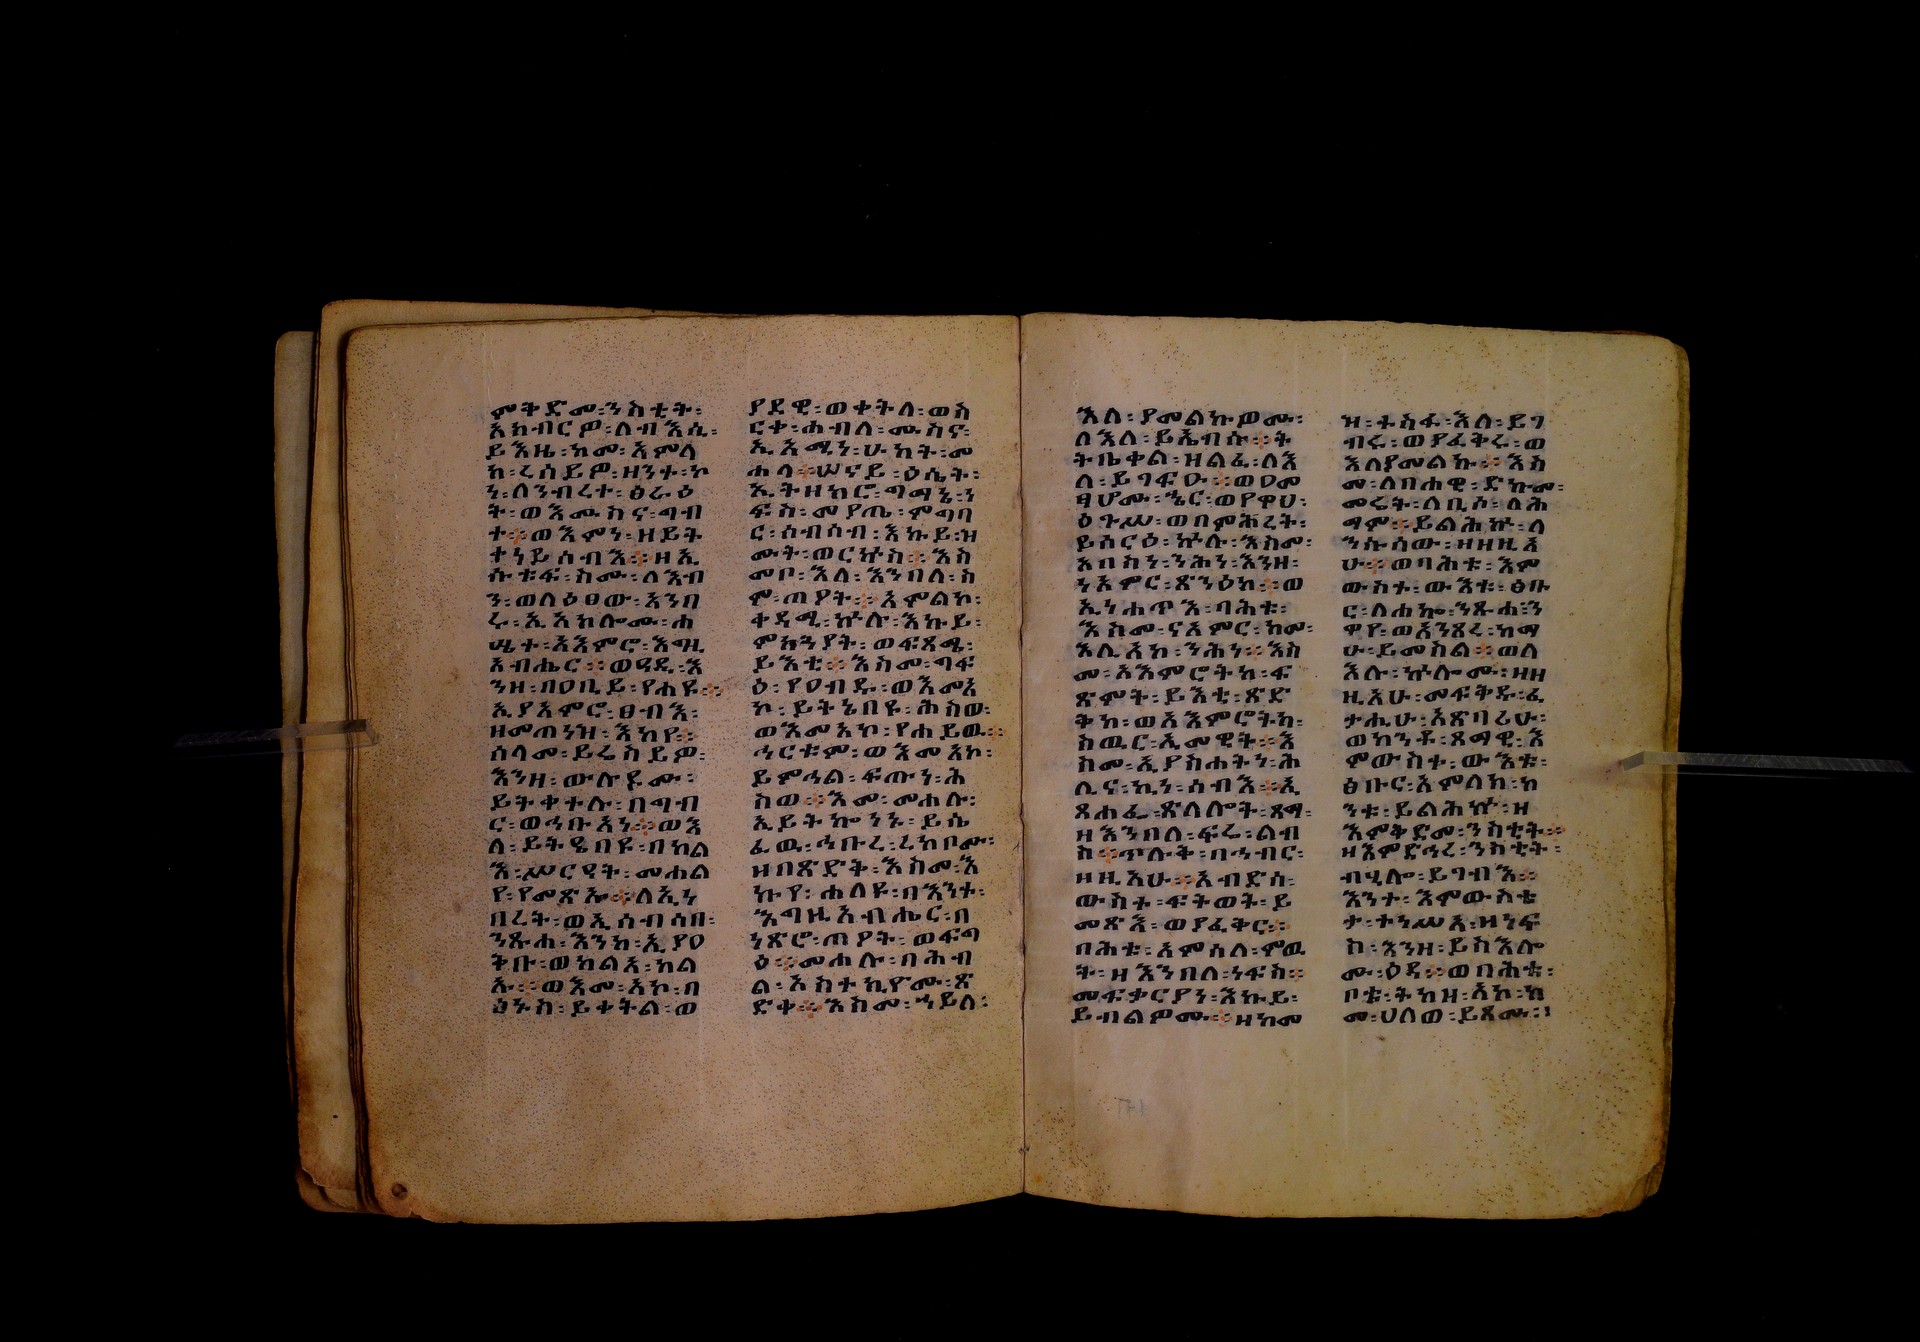 ምቅድመ፡ንስቲት፡
አክብርዎ፡ለብእሲ፡
ይእዜ፡ከመ፡አምላ
ክ፡ረሰይዎ፡ዘንተ፡ኮ
ነ፡ለንብረተ፡ፅራዕ
ት፡ወእሙስና፡ግብ
ተ፨ወእምን፡ዘይት
ተነይ፡ሰብእ፨ዘኢ
ሱቱፍ፡ስሙ፡ለእብ
ን፡ወለዕፀው፡አንበ
ሩ፡ኢአክሎሙ፡ሐ
ሤተ፡አእምሮ፡እግዚ
አብሔር፨ወዓዲ፡እ
ንዘ፡በዐቢይ፡የሐዩ፨
ኢያእምሮ፡ፀብእ፡
ዘመጠነዝ፡እከየ፨
ሰላመ፡ይሬስይዎ፡
እንዘ፡ውሉዶሙ፡
ይትቀተሉ፡በግብ
ር፡ወኅቡአነ፨ወእ
ለ፡ይትዔበዩ፡በካል
እ፡ሥርዓት፡መሐል
የ፡የመጽኡ፨ለኢነ
በረት፡ወኢሰብሳበ፡
ንጹሐ፡እንከ፡ኢያዐ
ቅቡ፡ወካልአ፡ካል
ኡ፨ወእመ፡አኮ፡በ
ዕኑስ፡ይቀትል፡ወ
ያደዊ፡ወቀትለ፡ወስ
ርቀ፡ሐብለ፡ሙስና፡
ኢአሚነ፡ሁከት፡መ
ሐላ፨ሠናይ፡ዕሴት፡
ኢትዘከሮ፡ግማኔ፡ነ
ፍስ፡መያጤ፡ምግባ
ር፡ሰብሳብ፡እኩይ፡ዝ
ሙት፡ወርኵስ፨እስ
መቦ፡እለ፡እንበለ፡ስ
ም፡ጠዖት፨አምልኮ፡
ቀዳሚ፡ኵሉ፡እኩይ፡
ምክንያት፡ወፍጻሜ፡
ይእቲ፨እስመ፡ግፍ
ዕ፡የዐብዱ፡ወእመአ
ኮ፡ይትኔበዩ፡ሕስወ፡
ወእመአኮ፡የሐይዉ፨
ኅርቱም፡ወእመአኮ፡
ይምኅል፡ፍጡነ፡ሕ
ስወ፨እመ፡መሐሉ፡
ኢይትኰነኑ፡ይሴ
ፈዉ፡ኅቡረ፡ረከቦሙ፡
ዘበጽድቅ፡እስመ፡እ
ኩየ፡ሐለዩ፡በእንተ፡
እግዚአብሔር፡በ
ነጽሮ፡ጠዖት፡ወፍግ
ዕ፨መሐሉ፡በሕብ
ል፡አስተኪዮሙ፡ጽ
ድቀ፨እስመ፡ኀይለ፡
እለ፡ያመልኩዎሙ፡
ለእለ፡ይኤብሱ፨ት
ትቤቀል፡ዘልፈ፡ለእ
ለ፡ይገፍዑ፨ወዐመ
ፃሆሙ፡ኄር፡ወየዋህ፡
ዕጉሠ፡ወበምሕረት፡
ይሰርዕ፡ኵሉ፡እስመ፡
አበስነ፡ንሕነ፡እንዘ፡
ነአምር፡ጽንዕከ፨ወ
ኢነሐጥእ፡ባሕቱ፡
እስመ፡ናአምር፡ከመ፡
እሊአከ፡ንሕነ፨እስ
መ፡አእምሮትከ፡ፍ
ጽምት፡ይእቲ፡ጽድ
ቅከ፡ወአእምሮትከ፡
ስዉር፡ኢመዊት፨እ
ስመ፡ኢያስሐትነ፡ሕ
ሊና፡ኪነ፡ሰብእ፨ኢ
ጸሐፈ፡ጽላሎት፡ጻማ፡
ዘእንበለ፡ፍሬ፡ልብ
ስ፨ጥሉቅ፡በኅብር፡
ዘዚአሁ፨አብድሰ፡
ውስተ፡ፍትወት፡ይ
መጽእ፡ወያፈቅር፨
በሕቱ፡አምሳለ፡ምዉ
ት፡ዘእንበለ፡ነፍስ፨
መፍቃርያነ፡እኩይ፡
ይብልዎሙ፨ዘከመ
ዝ፡ተስፋ፡እለ፡ይገ
ብሩ፡ወያፈቅሩ፡ወ
እለያመልኩ፨እስ
መ፡ለበሐዊ፡ድኩመ፡
መሬት፡ለቢሶ፡ለሕ
ማም፨ይልሕኵ፡ለ
ንሱሰው፡ዘዘዚአ
ሁ፨ወባሕቱ፡እም
ውስተ፡ውእቱ፡ፅቡ
ር፡ለሐኰ፡ንጹሐ፡ን
ዋየ፡ወአንጻረ፡ከማ
ሁ፡ይመስል፨ወለ
እሉ፡ኵሎሙ፡ዘዘ
ዚአሁ፡መፍቅዱ፡ፈ
ታሒሁ፡አጽባሪሁ፡
ወከንቶ፡ጻማዊ፡እ
ምውስተ፡ውእቱ፡
ፅቡር፡አምላከ፡ከ
ንቱ፡ይልሕኵ፡ዘ
እምቅድመ፡ንስቲት፨
ዘእምድኅረ፡ንስቲት፡
ብሂሎ፡ይገብእ፨
እንተ፡እምውስቴ
ታ፡ተነሥአ፡ዘነፍ
ስ፡እንዘ፡ይስእሎ
ሙ፡ዕዳ፨ወበሕቱ፡
ቦቱ፡ትካዘ፡አኮ፡ከ
መ፡ሀለወ፡ይጻሙ፡፡